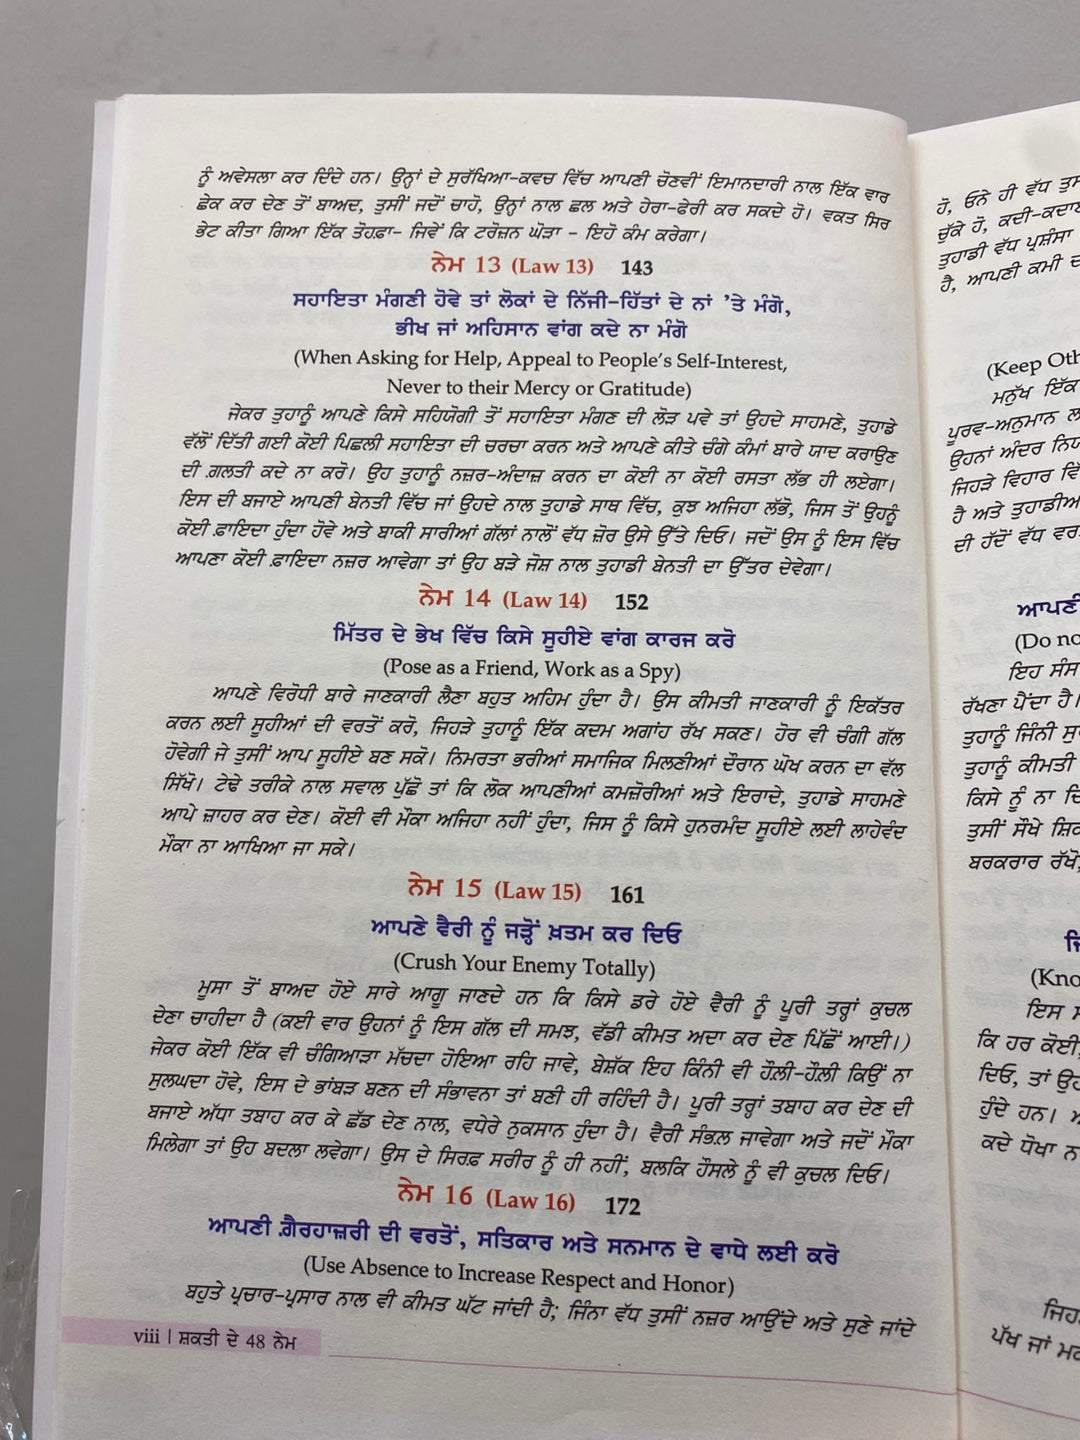 ਨੂੰ ਅਵੇਸਲਾ ਕਰ ਦਿੰਦੇ ਹਨ। ਉਨ੍ਹਾਂ ਦੇ ਸੁਰੱਖਿਆ-ਕਵਚ ਵਿੱਚ ਆਪਣੀ ਚੋਣਵੀਂ ਇਮਾਨਦਾਰੀ ਨਾਲ ਇੱਕ ਵਾਰ
ਛੇਕ ਕਰ ਦੇਣ ਤੋਂ ਬਾਅਦ, ਤੁਸੀਂ ਜਦੋਂ ਚਾਹੋ, ਉਨ੍ਹਾਂ ਨਾਲ ਛਲ ਅਤੇ ਹੇਰਾ-ਫੇਰੀ ਕਰ ਸਕਦੇ ਹੋ। ਵਕਤ ਸਿਰ
ਭੇਟ ਕੀਤਾ ਗਿਆ ਇੱਕ ਤੋਹਫ਼ਾ- ਜਿਵੇਂ ਕਿ ਟਰੋਜ਼ਨ ਘੋੜਾ - ਇਹੋ ਕੰਮ ਕਰੇਗਾ।
ਨੇਮ 13 (Law 13) 143
ਸਹਾਇਤਾ ਮੰਗਣੀ ਹੋਵੇ ਤਾਂ ਲੋਕਾਂ ਦੇ ਨਿੱਜੀ-ਹਿੱਤਾਂ ਦੇ ਨਾਂ ’ਤੇ ਮੰਗੋ,
ਭੀਖ ਜਾਂ ਅਹਿਸਾਨ ਵਾਂਗ ਕਦੇ ਨਾ ਮੰਗੋ
(When Asking for Help, Appeal to People’s Self-Interest,
Never to their Mercy or Gratitude)
ਜੇਕਰ ਤੁਹਾਨੂੰ ਆਪਣੇ ਕਿਸੇ ਸਹਿਯੋਗੀ ਤੋਂ ਸਹਾਇਤਾ ਮੰਗਣ ਦੀ ਲੋੜ ਪਵੇ ਤਾਂ ਉਹਦੇ ਸਾਹਮਣੇ, ਤੁਹਾਡੇ
ਵੱਲੋਂ ਦਿੱਤੀ ਗਈ ਕੋਈ ਪਿਛਲੀ ਸਹਾਇਤਾ ਦੀ ਚਰਚਾ ਕਰਨ ਅਤੇ ਆਪਣੇ ਕੀਤੇ ਚੰਗੇ ਕੰਮਾਂ ਬਾਰੇ ਯਾਦ ਕਰਾਉਣ
ਦੀ ਗ਼ਲਤੀ ਕਦੇ ਨਾ ਕਰੋ। ਉਹ ਤੁਹਾਨੂੰ ਨਜ਼ਰ-ਅੰਦਾਜ਼ ਕਰਨ ਦਾ ਕੋਈ ਨਾ ਕੋਈ ਰਸਤਾ ਲੱਭ ਹੀ ਲਏਗਾ।
ਇਸ ਦੀ ਬਜਾਏ ਆਪਣੀ ਬੇਨਤੀ ਵਿੱਚ ਜਾਂ ਉਹਦੇ ਨਾਲ ਤੁਹਾਡੇ ਸਾਥ ਵਿੱਚ, ਕੁਝ ਅਜਿਹਾ ਲੱਭੋ, ਜਿਸ ਤੋਂ ਉਹਨੂੰ
ਕੋਈ ਫ਼ਾਇਦਾ ਹੁੰਦਾ ਹੋਵੇ ਅਤੇ ਬਾਕੀ ਸਾਰੀਆਂ ਗੱਲਾਂ ਨਾਲੋਂ ਵੱਧ ਜ਼ੋਰ ਉਸੇ ਉੱਤੇ ਦਿਓ। ਜਦੋਂ ਉਸ ਨੂੰ ਇਸ ਵਿੱਚ
ਆਪਣਾ ਕੋਈ ਫ਼ਾਇਦਾ ਨਜ਼ਰ ਆਵੇਗਾ ਤਾਂ ਉਹ ਬੜੇ ਜੋਸ਼ ਨਾਲ ਤੁਹਾਡੀ ਬੇਨਤੀ ਦਾ ਉੱਤਰ ਦੇਵੇਗਾ।
ਨੇਮ 14 (Law 14) 152
ਮਿੱਤਰ ਦੇ ਭੇਖ ਵਿੱਚ ਕਿਸੇ ਸੂਹੀਏ ਵਾਂਗ ਕਾਰਜ ਕਰੋ
(Pose as a Friend, Work as a Spy)
ਆਪਣੇ ਵਿਰੋਧੀ ਬਾਰੇ ਜਾਣਕਾਰੀ ਲੈਣਾ ਬਹੁਤ ਅਹਿਮ ਹੁੰਦਾ ਹੈ। ਉਸ ਕੀਮਤੀ ਜਾਣਕਾਰੀ ਨੂੰ ਇਕੱਤਰ
ਕਰਨ ਲਈ ਸੂਹੀਆਂ ਦੀ ਵਰਤੋਂ ਕਰੋ, ਜਿਹੜੇ ਤੁਹਾਨੂੰ ਇੱਕ ਕਦਮ ਅਗਾਂਹ ਰੱਖ ਸਕਣ। ਹੋਰ ਵੀ ਚੰਗੀ ਗੱਲ
ਹੋਵੇਗੀ ਜੇ ਤੁਸੀਂ ਆਪ ਸੂਹੀਏ ਬਣ ਸਕੋ। ਨਿਮਰਤਾ ਭਰੀਆਂ ਸਮਾਜਿਕ ਮਿਲਣੀਆਂ ਦੌਰਾਨ ਘੋਖ ਕਰਨ ਦਾ ਵੱਲ
ਸਿੱਖੋ। ਟੇਢੇ ਤਰੀਕੇ ਨਾਲ ਸਵਾਲ ਪੁੱਛੋ ਤਾਂ ਕਿ ਲੋਕ ਆਪਣੀਆਂ ਕਮਜ਼ੋਰੀਆਂ ਅਤੇ ਇਰਾਦੇ, ਤੁਹਾਡੇ ਸਾਹਮਣੇ
ਆਪੇ ਜ਼ਾਹਰ ਕਰ ਦੇਣ। ਕੋਈ ਵੀ ਮੌਕਾ ਅਜਿਹਾ ਨਹੀਂ ਹੁੰਦਾ, ਜਿਸ ਨੂੰ ਕਿਸੇ ਹੁਨਰਮੰਦ ਸੂਹੀਏ ਲਈ ਲਾਹੇਵੰਦ
ਮੌਕਾ ਨਾ ਆਖਿਆ ਜਾ ਸਕੇ।
ਨੇਮ 15 (Law 15) 161
ਆਪਣੇ ਵੈਰੀ ਨੂੰ ਜੜ੍ਹੋਂ ਖ਼ਤਮ ਕਰ ਦਿਓ
(Crush Your Enemy Totally)
ਮੂਸਾ ਤੋਂ ਬਾਅਦ ਹੋਏ ਸਾਰੇ ਆਗੂ ਜਾਣਦੇ ਹਨ ਕਿ ਕਿਸੇ ਡਰੇ ਹੋਏ ਵੈਰੀ ਨੂੰ ਪੂਰੀ ਤਰ੍ਹਾਂ ਕੁਚਲ
ਦੇਣਾ ਚਾਹੀਦਾ ਹੈ (ਕਈ ਵਾਰ ਉਹਨਾਂ ਨੂੰ ਇਸ ਗੱਲ ਦੀ ਸਮਝ, ਵੱਡੀ ਕੀਮਤ ਅਦਾ ਕਰ ਦੇਣ ਪਿੱਛੋਂ ਆਈ।)
ਜੇਕਰ ਕੋਈ ਇੱਕ ਵੀ ਚੰਗਿਆੜਾ ਮੱਚਦਾ ਹੋਇਆ ਰਹਿ ਜਾਵੇ, ਬੇਸ਼ੱਕ ਇਹ ਕਿੰਨੀ ਵੀ ਹੌਲੀ-ਹੌਲੀ ਕਿਉਂ ਨਾ
ਸੁਲਘਦਾ ਹੋਵੇ, ਇਸ ਦੇ ਭਾਂਬੜ ਬਣਨ ਦੀ ਸੰਭਾਵਨਾ ਤਾਂ ਬਣੀ ਹੀ ਰਹਿੰਦੀ ਹੈ। ਪੂਰੀ ਤਰ੍ਹਾਂ ਤਬਾਹ ਕਰ ਦੇਣ ਦੀ
ਬਜਾਏ ਅੱਧਾ ਤਬਾਹ ਕਰ ਕੇ ਛੱਡ ਦੇਣ ਨਾਲ, ਵਧੇਰੇ ਨੁਕਸਾਨ ਹੁੰਦਾ ਹੈ। ਵੈਰੀ ਸੰਭਲ਼ ਜਾਵੇਗਾ ਅਤੇ ਜਦੋਂ ਮੌਕਾ
ਮਿਲੇਗਾ ਤਾਂ ਉਹ ਬਦਲਾ ਲਵੇਗਾ। ਉਸ ਦੇ ਸਿਰਫ਼ ਸਰੀਰ ਨੂੰ ਹੀ ਨਹੀਂ, ਬਲਕਿ ਹੌਸਲੇ ਨੂੰ ਵੀ ਕੁਚਲ ਦਿਓ।
ਨੇਮ 16 (Law 16) 172
ਆਪਣੀ ਗ਼ੈਰਹਾਜ਼ਰੀ ਦੀ ਵਰਤੋਂ, ਸਤਿਕਾਰ ਅਤੇ ਸਨਮਾਨ ਦੇ ਵਾਧੇ ਲਈ ਕਰੋ
(Use Absence to Increase Respect and Honor)
ਬਹੁਤੇ ਪ੍ਰਚਾਰ-ਪ੍ਰਸਾਰ ਨਾਲ ਵੀ ਕੀਮਤ ਘੱਟ ਜਾਂਦੀ ਹੈ; ਜਿੰਨਾ ਵੱਧ ਤੁਸੀਂ ਨਜ਼ਰ ਆਉਂਦੇ ਅਤੇ ਸੁਣੇ ਜਾਂਦੇ
viii | ਸ਼ਕਤੀ ਦੇ 48 ਨੇਮ
ਹੋ, ਓਨੇ ਹੀ ਵੱਧ
ਚੁੱਕੇ ਹੋ,
ਤੁਹਾਡੀ ਵੱਧ ਪ੍ਰਸ਼ੰਸਾ
ਹੈ, ਆਪਣੀ ਕਮੀ
(Keep
ਮਨੁੱਖ ਇੱਕ
ਪੂਰਵ-ਅਨੁਮਾਨ
ਉਹਨਾਂ ਅੰਦਰ
ਜਿਹੜੇ ਵਿਹਾਰ
ਹੈ ਅਤੇ
ਦੀ ਹੱਦੋਂ ਵੱਧ
ਆਪਣੀ
(Do
ਇਹ
ਰੱਖਣਾ ਪੈਂਦਾ ਹੈ।
ਤੁਹਾਨੂੰ ਜਿੰਨੀ
ਤੁਹਾਨੂੰ ਕੀਮਤੀ
ਕਿਸੇ ਨੂੰ ਨਾ
ਤੁਸੀਂ ਸੌਖੇ
ਬਰਕਰਾਰ ਰੱਖੋ,
ਇਸ
ਕਿ ਹਰ ਕੋਈ,
ਦਿਓ, ਤਾਂ
ਹੁੰਦੇ ਹਨ।
ਕਦੇ ਧੋਖਾ
ਪੱਖ ਜਾਂ